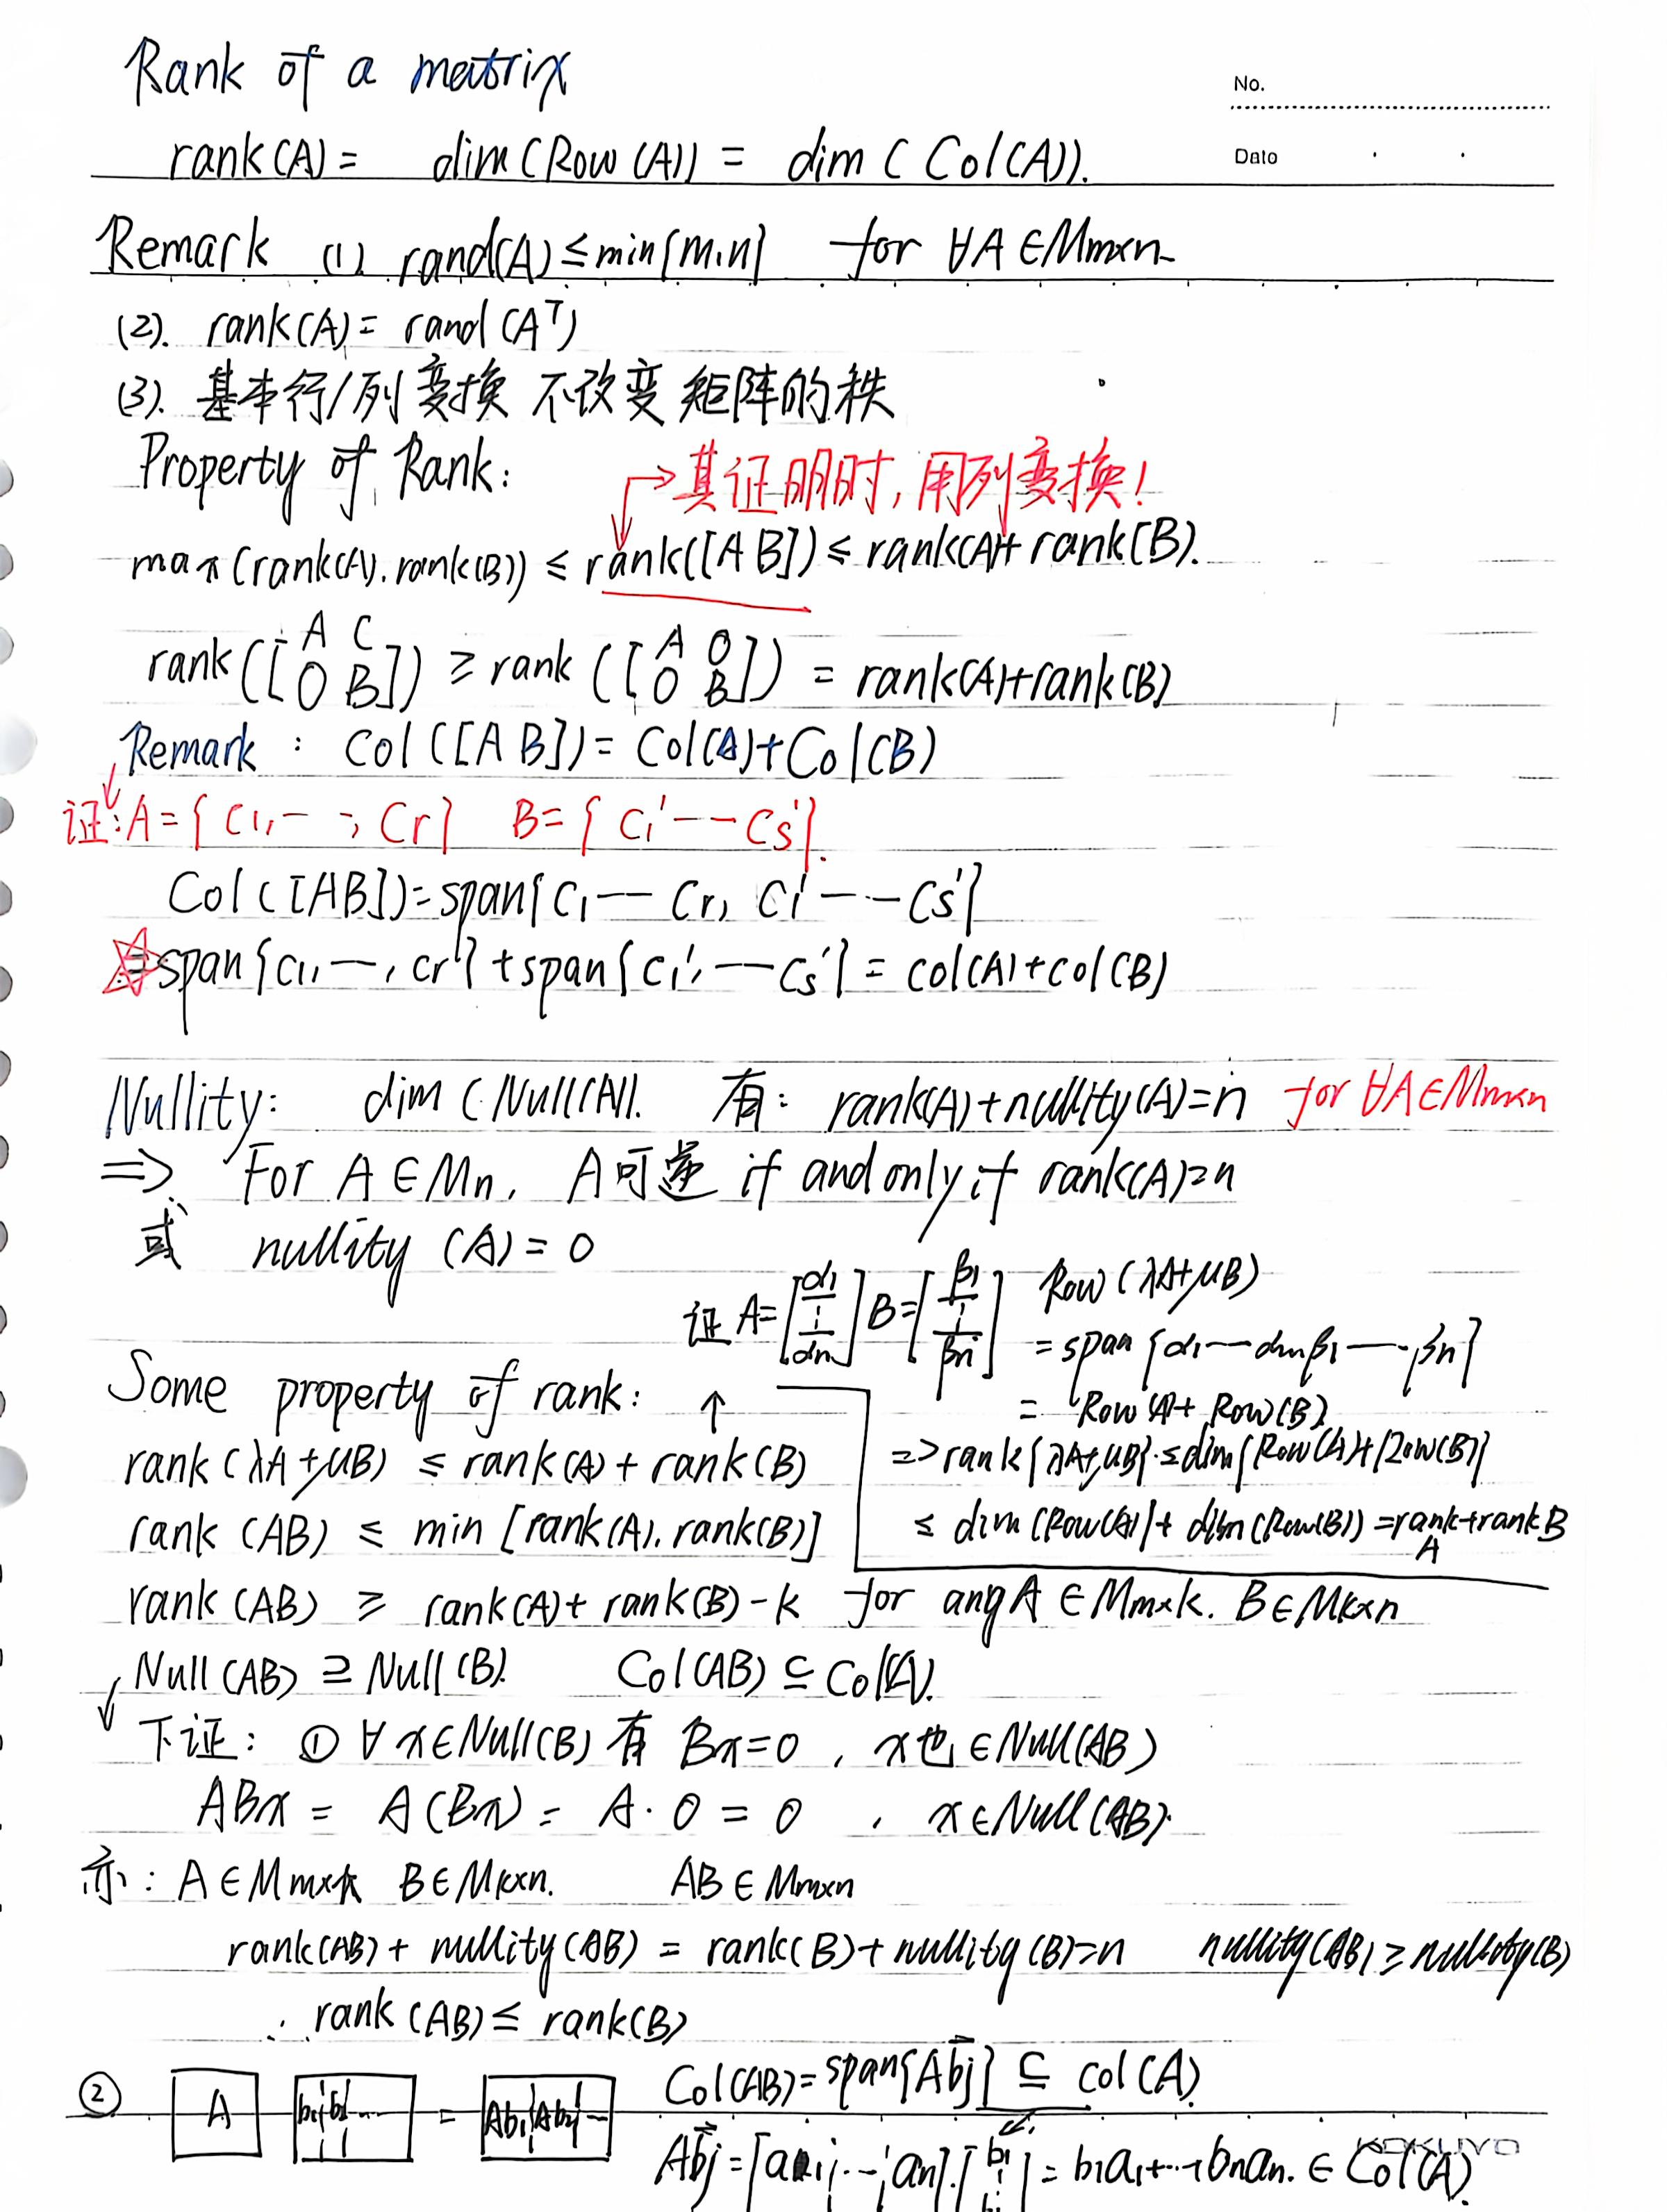 Rank of a matrix
No.
rank(A) = dim(Row(A)) = dim(Col(A)).
Date
Remark (1). rand(A) ≤ min{m,n} for ∀A∈Mm×n
(2). rank(A) = rand(Aᵀ)
(3). 基本行/列变换 不改变 矩阵的秩
Property of Rank:
→ 其证明时,用列变换!
max(rank(A).rank(B)) ≤ rank([A B]) ≤ rank(A)+rank(B).
rank([A C
O B]) ≥ rank([A O
O B]) = rank(A)+rank(B)
Remark : Col([A B]) = Col(A)+Col(B)
证: A={C1,—,Cr} B={C1'——Cs'}.
Col([AB])=span{C1——Cr, C1'——Cs'}
=span{C1,—,Cr}+span{C1',—Cs'} = Col(A)+Col(B)
Nullity: dim(Null(A)). 有: rank(A)+nullity(A)=n for ∀A∈Mm×n
=> For A∈Mn, A可逆 if and only if rank(A)=n
或 nullity (A) = 0
证 A=[α1 ⋮ αn] B=[β1 ⋮ βn] Row(λA+μB)
= span{α1—αn,β1——βn}
Some property of rank: ↑
= Row(A)+Row(B)
rank(λA+μB) ≤ rank(A)+rank(B)
=> rank{λA+μB} ≤ dim{Row(A)+Row(B)}
rank(AB) ≤ min[rank(A).rank(B)]
≤ dim(Row(A))+dim(Row(B)) = rankA+rankB
rank(AB) ≥ rank(A)+rank(B)-k for any A∈Mm×k. B∈Mk×n
Null(AB) ⊇ Null(B). Col(AB) ⊆ Col(A).
下证: ① ∀x∈Null(B) 有 Bx=0 , x也∈Null(AB)
ABx = A(Bx) = A·0 = 0 , x∈Null(AB).
亦: A∈Mm×k B∈Mk×n. AB∈Mm×n
rank(AB)+nullity(AB) = rank(B)+nullity(B)=n nullity(AB)≥nullity(B)
∴ rank(AB) ≤ rank(B)
② A b1 b2 ... = Ab1 Ab2 — Col(AB)=span{Abj} ⊆ Col(A)
Abj=[a1 ... an].[b1 ⋮ = b1a1+...+bnan. ∈ Col(A)
KOKUYO